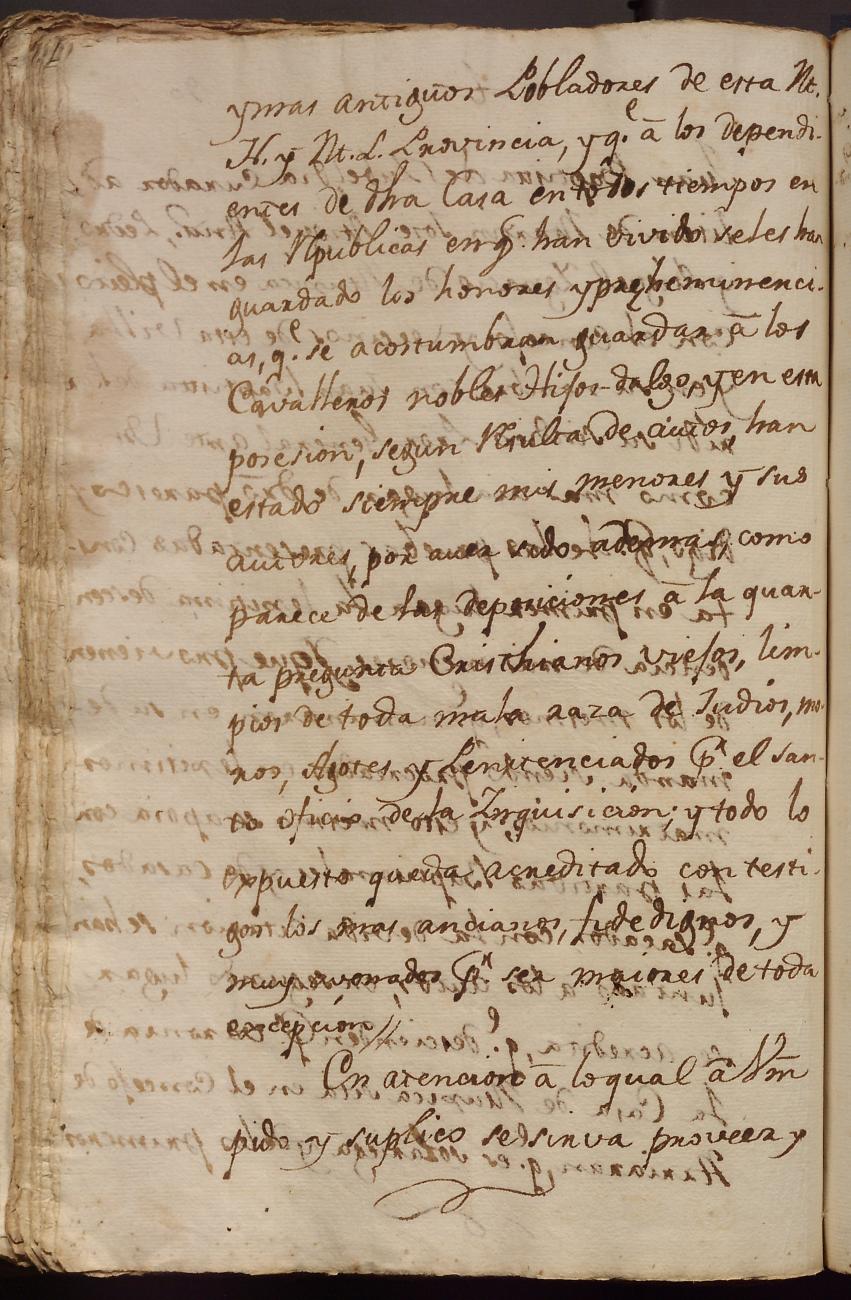 y mas antiguos Pobladores de esta M.
N. y M. L. Provincia, y q.e â los dependi-
entes de dha Casa en todos tiempos en
las Republicas en q.e han vivido se les han
guardado los honores y preheminenci-
as, q.e se acostumbran guardar â los
Cavalleros nobles Hijos-dalgo, y en esta
posesion, segun Resulta de autos, han
estado siempre mis menores y sus
autores, por aver sido ademas, como
parece de las deposiciones â la quar-
ta pregunta Cristhianos viejos, lim-
pios de toda mala raza de Judios, mo-
ros, Agotes y Penitenciados p.r el san-
to oficio de la Inquisicion; y todo lo
expuesto queda acreditado con testi-
gos los mas ancianos, fidedignos, y
muy onrrados p.r ser maiores de toda
excepcion//
En atencion â lo qual â Vm
pido, y suplico se sirva proveer y